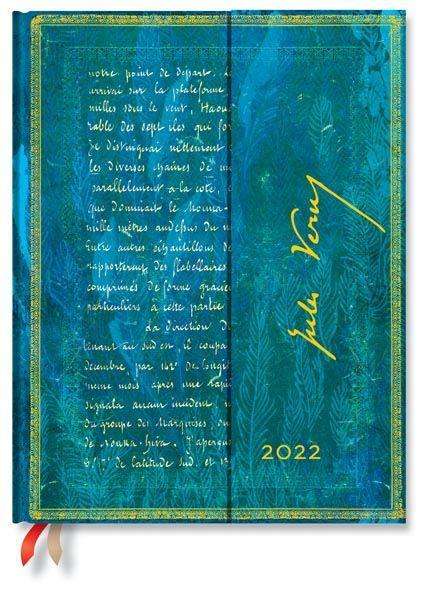 notre point de départ. L
arrivai sur la plateforme
milles sous le vent, Haou
rable des sept îles qui for
Je distinguai nettement
les diverses chaînes de m
parallèlement à la côte,
que dominait le Mouna-
mille mètres au dessus du n
Entre autres échantillons de
rapportèrent des flabellaires
comprimés de forme gracieu
particuliers à cette partie
La direction D
tenant au sud-est, il coupa
décembre, par 142° de longit
même mois après une rapi
signala aucun incident,
du groupe des Marquises,
de Nouka-Hiva. J'aperçus
de latitude sud, et 13
Jules Verne
2022